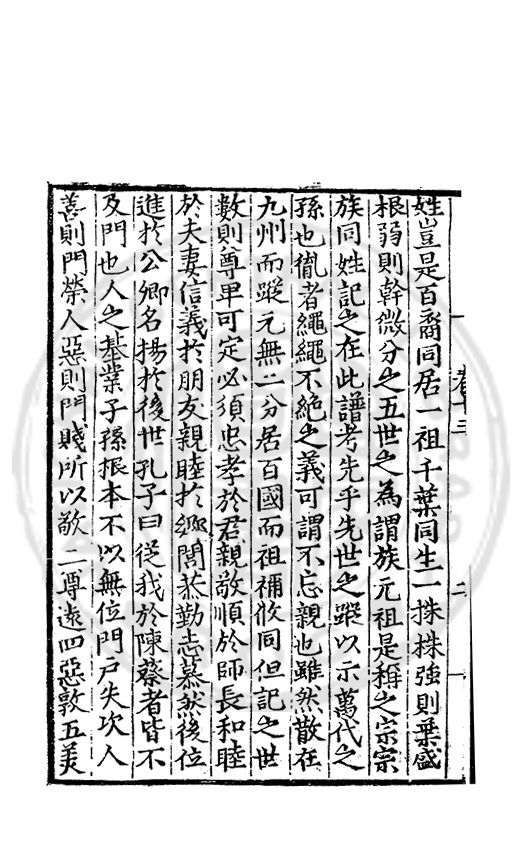 姓豈是百裔同居一祖千葉同生一株株強則葉盛
根弱則幹微分之五世之為謂族元祖是稱之宗宗
族同姓記之在此譜考先乎先世之蹤以示萬代之
孫也胤者繩繩不絶之義可謂不忘親也雖然散在
九州而蹤元無二分居百國而祖禰攸同但記之世
數則尊卑可定必須忠孝於君親敬順於師長和睦
於夫妻信義於朋友親睦於鄉閭恭勤志慕然後位
進於公卿名揚於後世孔子曰從我於陳蔡者皆不
及門也人之基業子孫根本不以無位門戶失次人
善則門榮人惡則門賤所以敬二尊遠四惡敦五美
卷十三
二